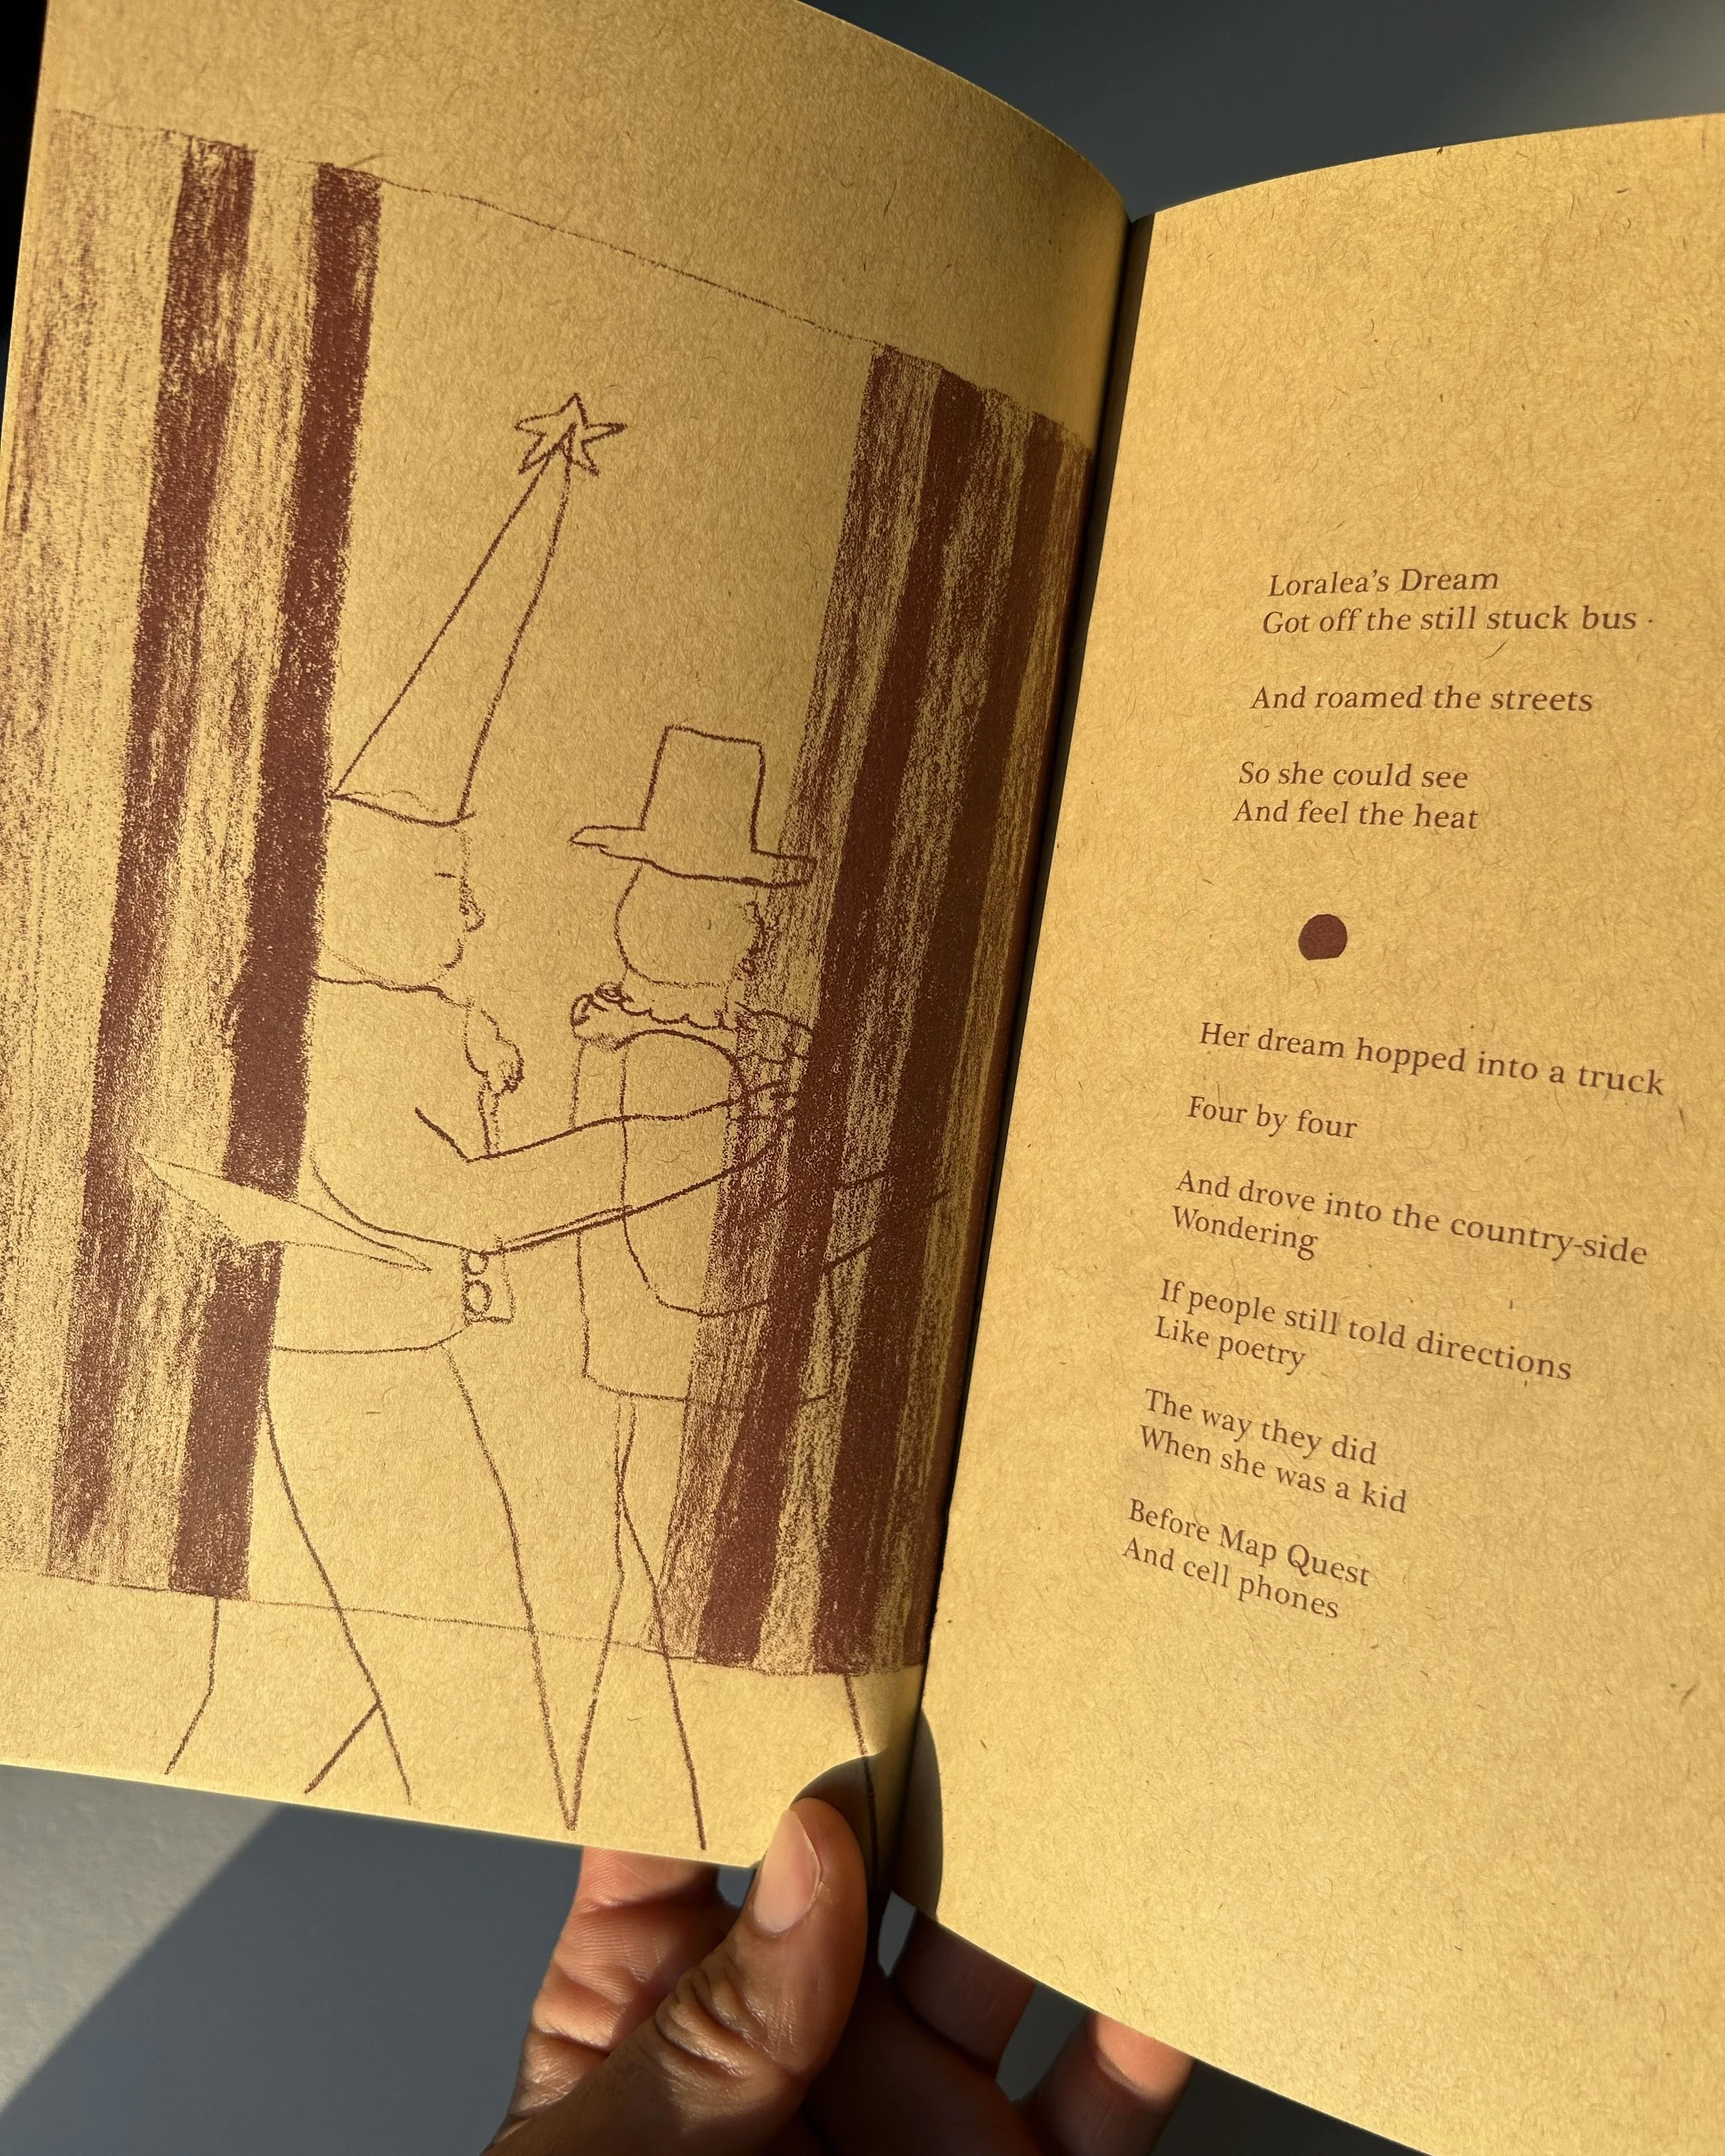 Loralea's Dream
Got off the still stuck bus
And roamed the streets
So she could see
And feel the heat
Her dream hopped into a truck
Four by four
And drove into the country-side
Wondering
If people still told directions
Like poetry
The way they did
When she was a kid
Before Map Quest
And cell phones